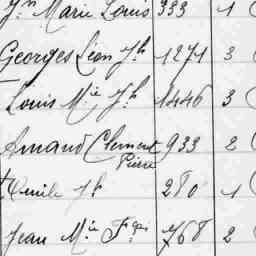 Jn Marie Louis 333 1
Georges Léon Jh 1271 3
Louis Mie Jh 1446 3
Amand Clement 933 2
Pierre
Emile Jh 280 1
Jean Mie Fçois 768 2